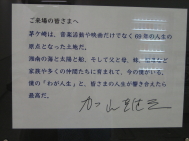 ご来場の皆さまへ
茅ケ崎は、音楽活動や映画だけでなく69年の人生の
原点となった土地だ。
湘南の海と太陽と船、そして父と母、妹、
家族や多くの仲間たちに育まれて、今の僕がいる。
僕の「わが人生」と、皆さまの人生が響き合えたら
最高だ。
加山雄三